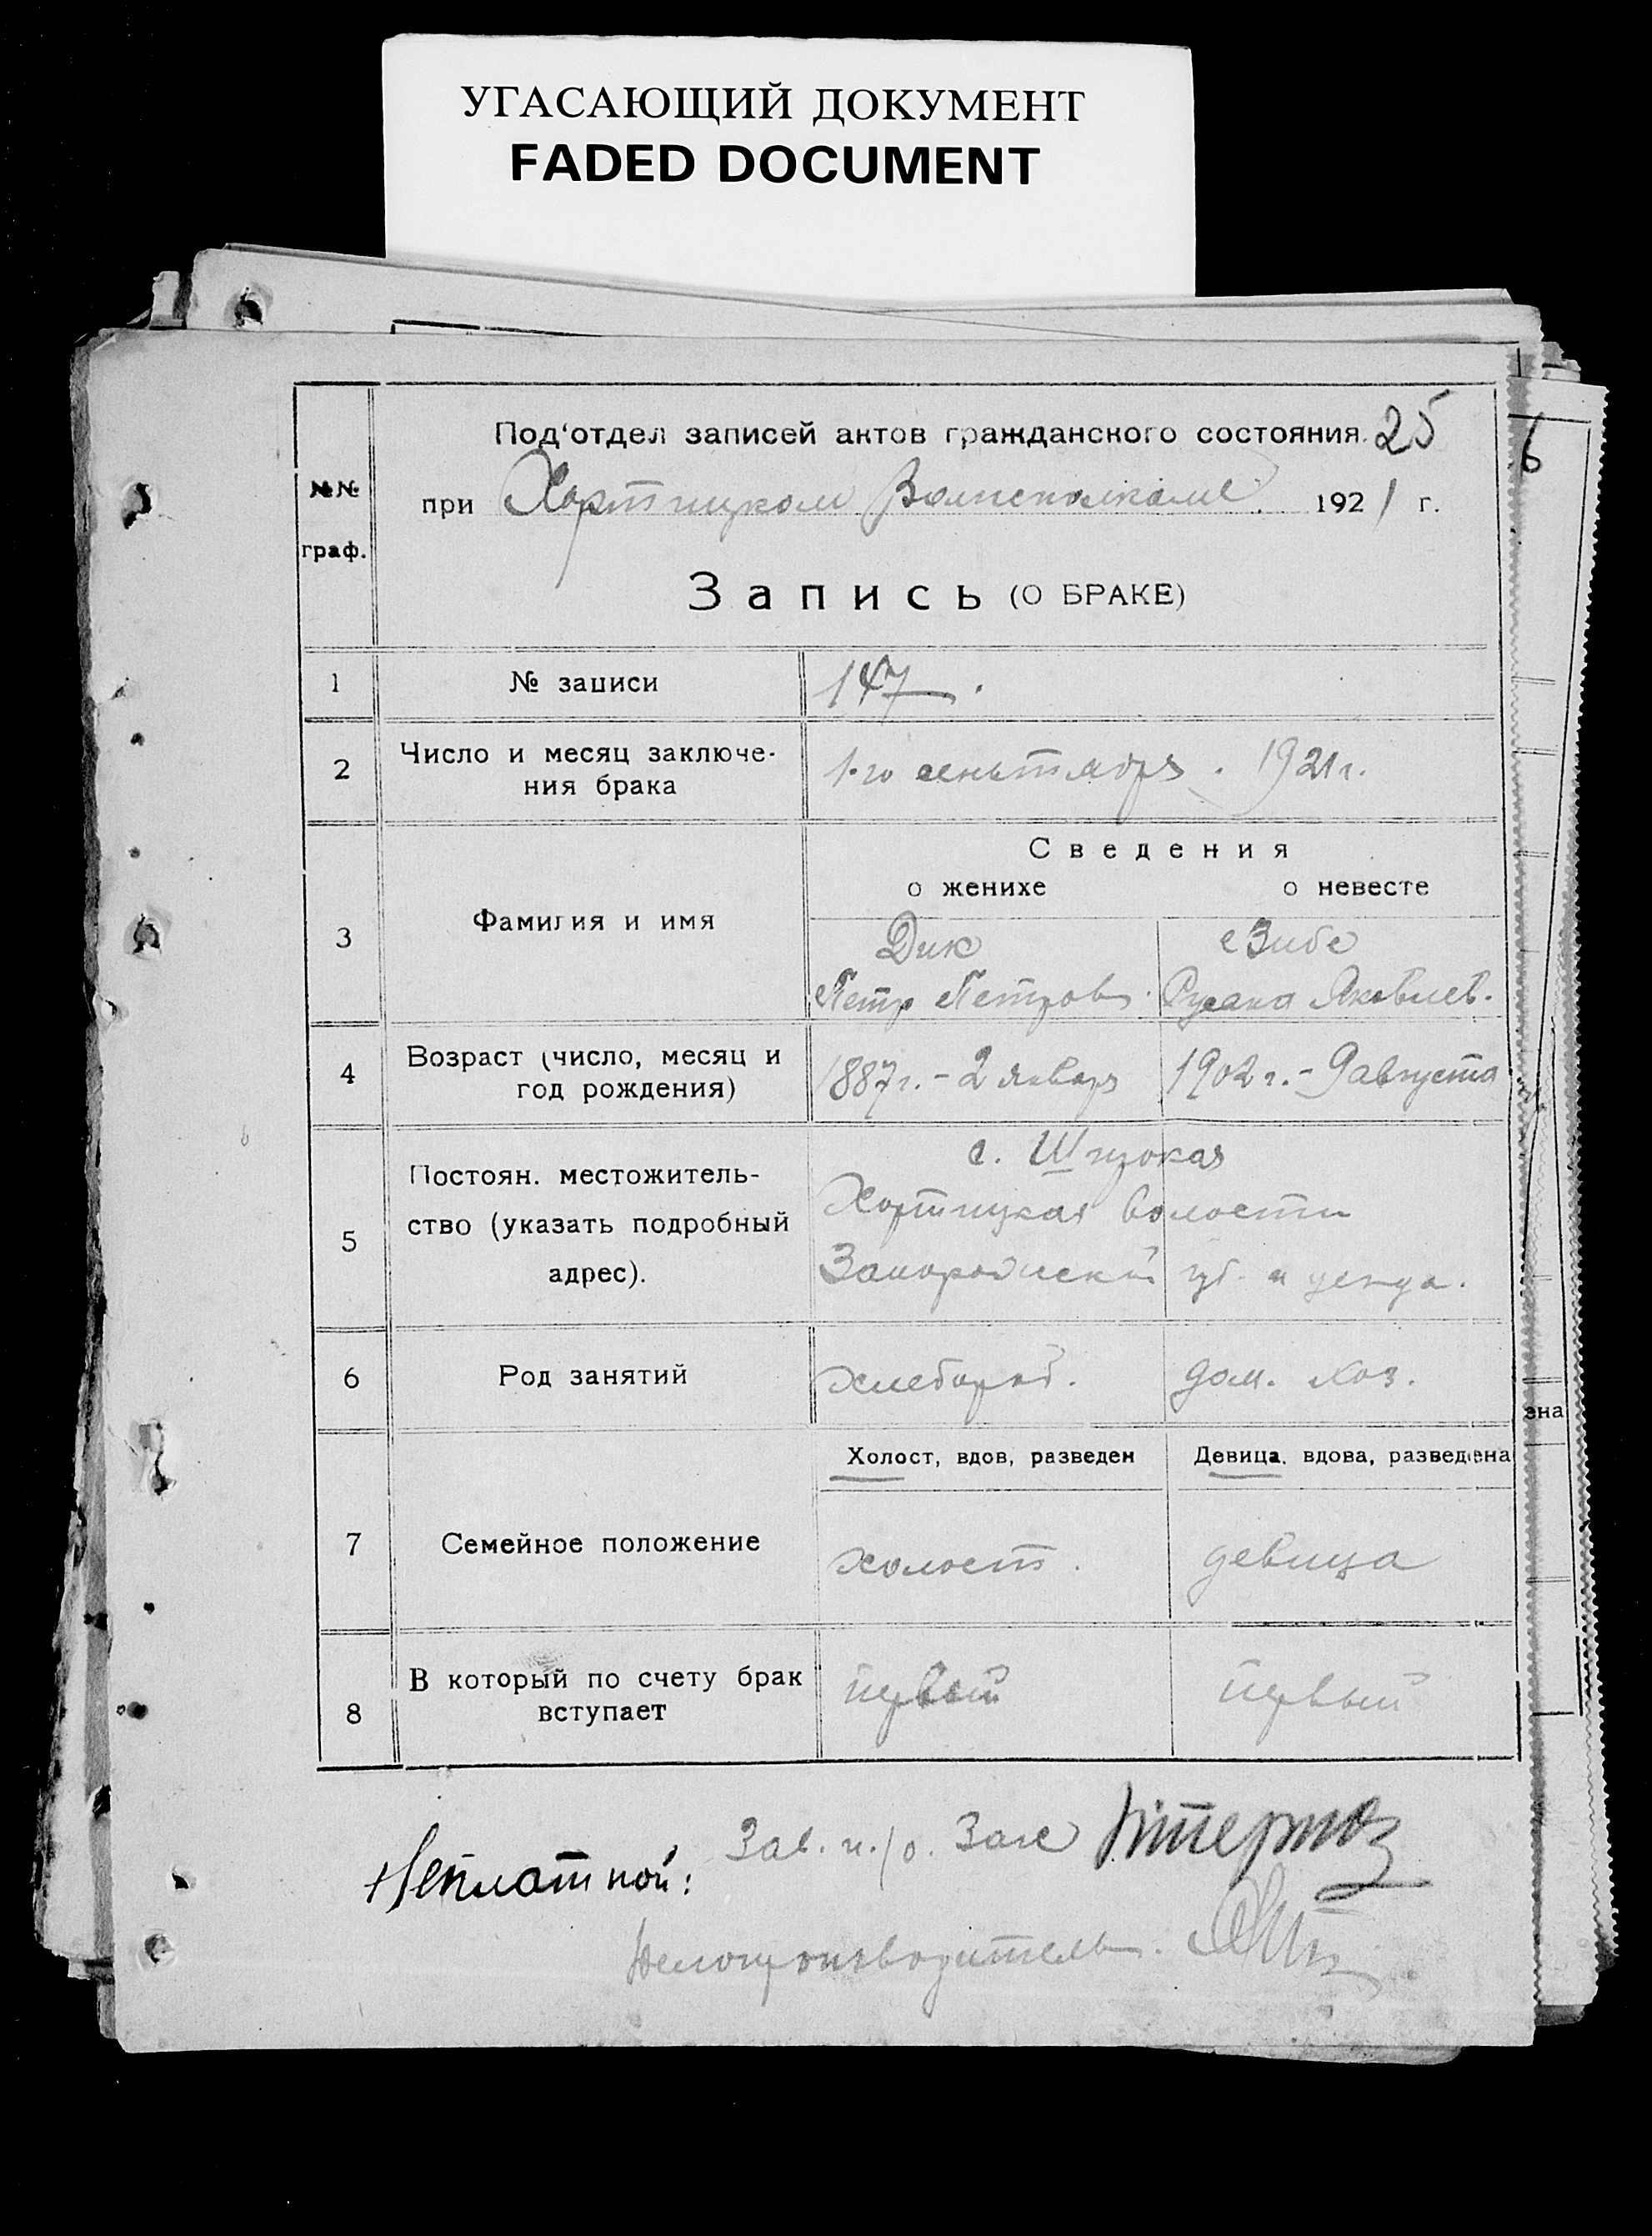 УГАСАЮЩИЙ ДОКУМЕНТ
FADED DOCUMENT
№№ граф.
Под'отдел записей актов гражданского состояния. 25
при Хортицком Волисполкоме 1921 г.
6
Запись (О БРАКЕ)
1 № записи 147.
2 Число и месяц заключе-
ния брака
1-го сеньтября. 1921 г.
Сведения
о женихе о невесте
3 Фамилия и имя
Дик Зибе
Петр Петров. Сусана Яковлев.
4 Возраст (число, месяц и
год рождения)
1887 г. - 2 январ 1902 г. - 9 августа
5 Постоян. местожитель-
ство (указать подробный
адрес).
с.
Хортицкая волости
Запорожский уезда.
6 Род занятий хлебороб. дом. хоз.
Холост, вдов, разведен Девица, вдова, разведена
ена
7 Семейное положение холост. девица
8 В который по счету брак
вступает
первый первый
Зав. п./о. Загс
Неплатной:
Делопроизводитель.